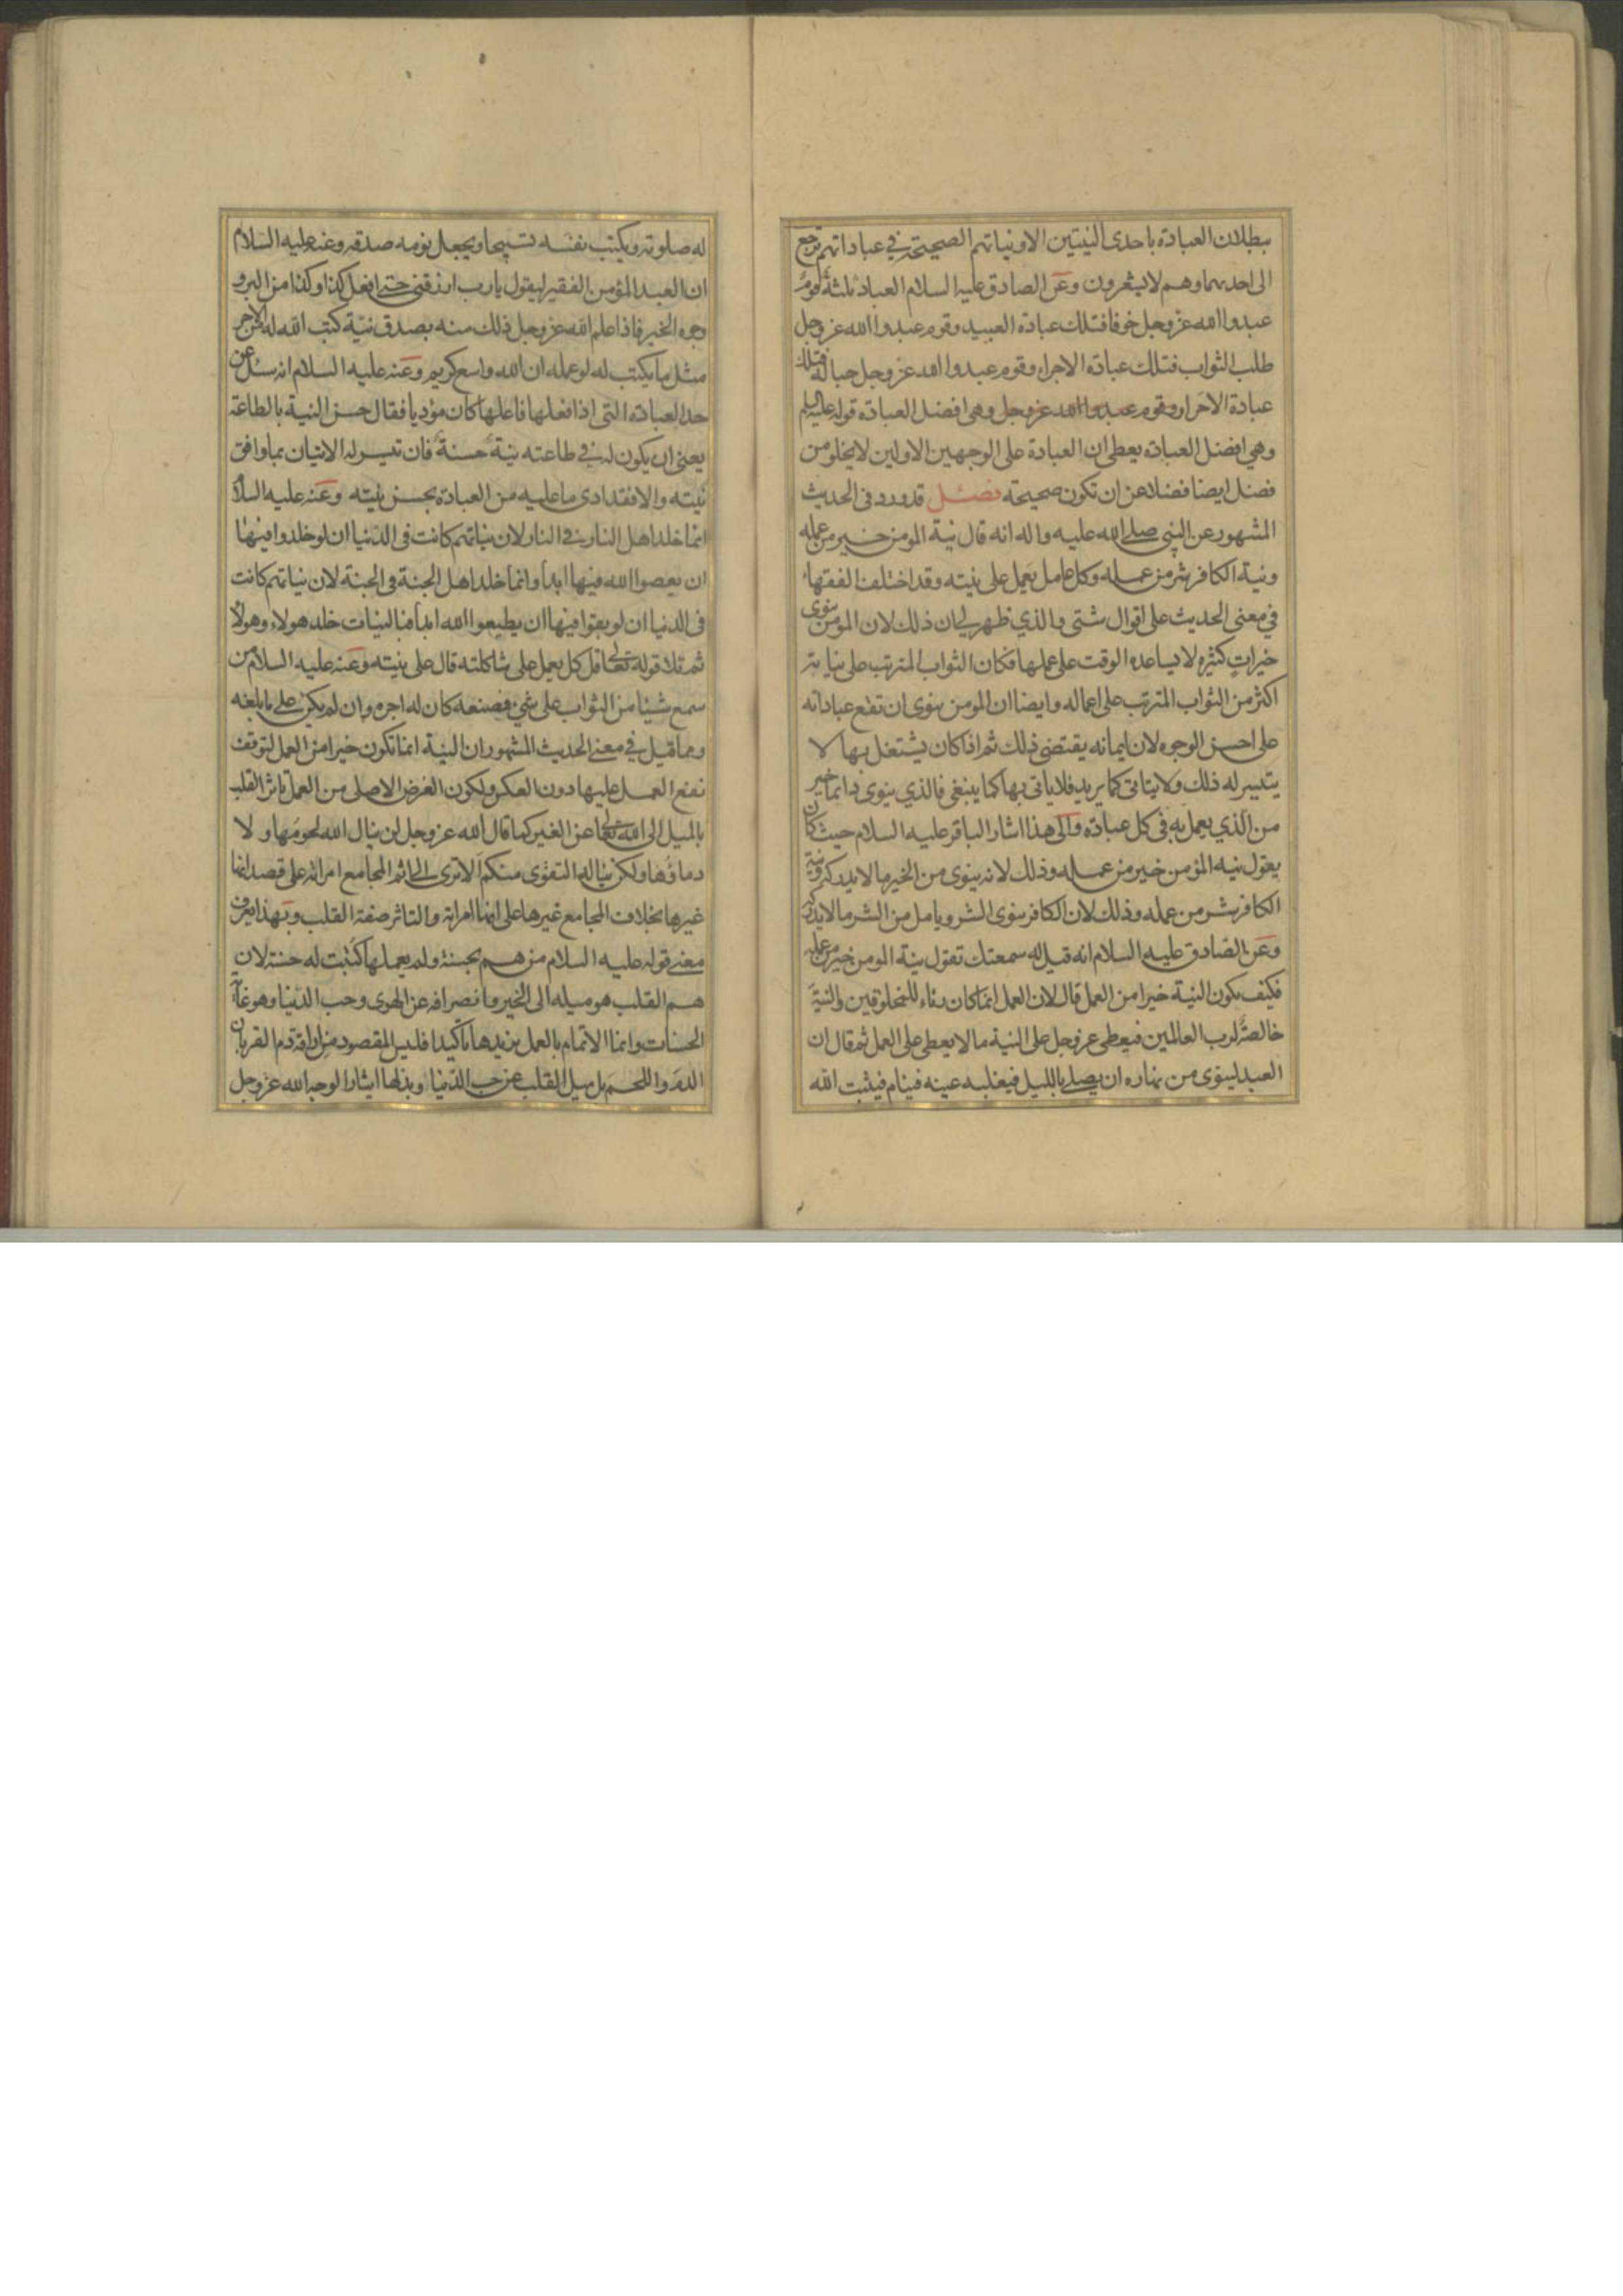 ببطلان العبادة باحدى النيتين الا ونياتهم الصحيحة في عباداتهم ترجع
الى احدهما وهم لا يشعرون وعن الصادق عليه السلام العباد ثلثة قوم
عبدوا الله عز وجل خوفا فتلك عبادة العبيد وقوم عبدوا الله عز وجل
طلب الثواب فتلك عبادة الاجراء وقوم عبدوا الله عز وجل حبا له فتلك
عبادة الاحرار وقوم عبدوا الله عز وجل وهى افضل العبادة قوله عليه السلم
وهي افضل العبادة يعطى ان العبادة على الوجهين الاولين لا يخلو من
فضل ايضا فضلا عن ان تكون صحيحة فصل قد ورد فى الحديث
المشهور عن النبي صلى الله عليه واله انه قال نية المومن خير من عمله
ونية الكافر شر من عمله وكل عامل يعمل على نيته وقد اختلف الفقهاء
في معنى الحديث على اقوال شتى والذي ظهر لي ان ذلك لان المومن ينوى
خيرات كثيره لا يساعده الوقت على عملها فكان الثواب المترتب على نياته
اكثر من الثواب المترتب على اعماله وايضا ان المومن ينوى ان تقع عباداته
على احسن الوجوه لان ايمانه يقتضى ذلك ثم اذا كان يشتغل بها لا
يتيسر له ذلك ولا يتاتى كما يريد فلا ياتى بها كما ينبغى فالذي ينوى دائما خير
من الذي يعمل به فى كل عبادة والى هذا اشار الباقر عليه السلام حيث كان
يقول نيه المؤمن خير من عمله وذلك لانه ينوى من الخير ما لا يدركه ونية
الكافر شر من عمله وذلك لان الكافر ينوى الشر ويامل من الشر ما لا يدركه
وعن الصادق عليه السلام انه قيل له سمعتك تقول نية المومن خير من عمله
فكيف تكون النية خيرا من العمل قال لان العمل انما كان رئاء للمخلوقين والنية
خالصة لرب العالمين فيعطى عز وجل على النية ما لا يعطى على العمل ثم قال ان
العبد لينوى من نهاره ان يصلي بالليل فيغلبه عينه فينام فيثبت الله
له صلوته ويكتب نفسه تسبيحا ويجعل نومه صدقه وعنه عليه السلام
ان العبد المؤمن الفقير ليقول يا رب ارزقني حتى افعل كذا وكذا من البر و
وجوه الخير فاذا علم الله عز وجل ذلك منه بصدق نية كتب الله له من الاجر
مثل ما يكتب له لو عمله ان الله واسع كريم وعنه عليه السلام انه سئل عن
حد العبادة التى اذا فعلها فاعلها كان مؤديا فقال حسن النية بالطاعة
يعني ان يكون له في طاعته نية حسنة فان تيسر له الاتيان بما وافق
نيته والا فقد ادى ما عليه من العبادة بحسن نيته وعنه عليه السلام
انما خلد اهل النار في النار لان نياتهم كانت فى الدنيا ان لو خلدوا فيها
ان يعصوا الله فيها ابدا وانما خلد اهل الجنة فى الجنة لان نياتهم كانت
فى الدنيا ان لو بقوا فيها ان يطيعوا الله ابدا فبالنيات خلد هولاء وهولاء
ثم تلا قوله تعالى قل كل يعمل على شاكلته قال على نيته وعنه عليه السلام من
سمع شيئا من الثواب على شي فصنعه كان له اجره وان لم يكن على ما بلغه
ومما قيل في معنى الحديث المشهور ان النية انما تكون خيرا من العمل لتوقف
نفع العمل عليها دون العكس ولكون الغرض الاصلى من العمل تاثر القلب
بالميل الى الله تعالى عن الغير كما قال الله عز وجل لن ينال الله لحومها ولا
دماؤها ولكن يناله التقوى منكم الا ترى الى اثم المجامع امراته على قصد انها
غيرها بخلاف المجامع غيرها على انها امراته والتاثر صفة القلب وبهذا يعرف
معنى قوله عليه السلام من هم بحسنة ولم يعملها كتبت له حسنة لان
هم القلب هو ميله الى الخير وانصرافه عن الهوى وحب الدنيا وهو غاية
الحسنات وانما الاتمام بالعمل يزيدها تاكيدا فليس المقصود من اراقة دم القربان
الدم واللحم بل ميل القلب عن حب الدنيا وبذلها ايثارا لوجه الله عز وجل